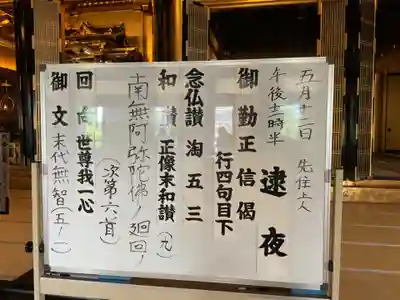 五月十二日 先住上人
午後七時半 逮夜
御勤 正信偈
行四句目下
念仏讃 淘五三
和讃 正像末和讃(九)
南無阿弥陀佛ノ廻回ノ
(次第六首)
回向 世尊我一心
御文 末代無智(五ノ一)